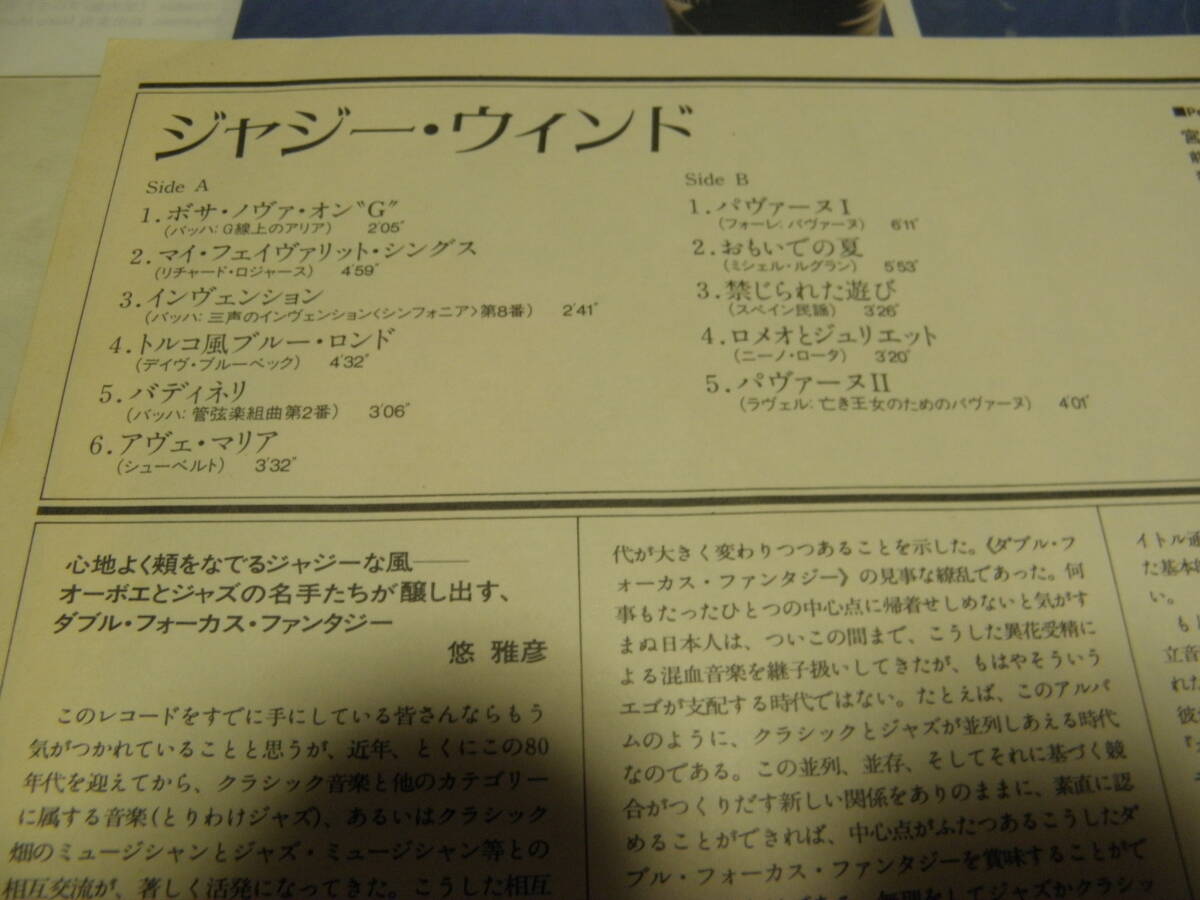 ジャジー・ウィンド
Side A
1. ボサ・ノヴァ・オン“G”
(バッハ: G線上のアリア) 2′05″
2. マイ・フェイヴァリット・シングス
(リチャード・ロジャース) 4′59″
3. インヴェンション
(バッハ: 三声のインヴェンション〈シンフォニア〉第8番) 2′41″
4. トルコ風ブルー・ロンド
(デイヴ・ブルーベック) 4′32″
5. バディネリ
(バッハ: 管弦楽組曲第2番) 3′06″
6. アヴェ・マリア
(シューベルト) 3′32″
Side B
1. パヴァーヌI
(フォーレ: パヴァーヌ) 6′11″
2. おもいでの夏
(ミシェル・ルグラン) 5′53″
3. 禁じられた遊び
(スペイン民謡) 3′26″
4. ロメオとジュリエット
(ニーノ・ロータ) 3′20″
5. パヴァーヌII
(ラヴェル: 亡き王女のためのパヴァーヌ) 4′01″
心地よく頬をなでるジャジーな風——
オーボエとジャズの名手たちが醸し出す、
ダブル・フォーカス・ファンタジー
悠 雅彦
このレコードをすでに手にしている皆さんならもう
気がつかれていることと思うが、近年、とくにこの80
年代を迎えてから、クラシック音楽と他のカテゴリー
に属する音楽(とりわけジャズ)、あるいはクラシック
畑のミュージシャンとジャズ・ミュージシャン等との
相互交流が、著しく活発になってきた。こうした相互
代が大きく変わりつつあることを示した。《ダブル・フ
ォーカス・ファンタジー》の見事な繚乱であった。何
事もたったひとつの中心点に帰着せしめないと気がす
まぬ日本人は、ついこの間まで、こうした異花受精に
よる混血音楽を継子扱いしてきたが、もはやそういう
エゴが支配する時代ではない。たとえば、このアルバ
ムのように、クラシックとジャズが並列しあえる時代
なのである。この並列、並存、そしてそれに基づく競
合がつくりだす新しい関係をありのままに、素直に認
めることができれば、中心点がふたつあるこうしたダ
ブル・フォーカス・ファンタジーを賞味することがで
イトル通
た基本
い。
立音
れた